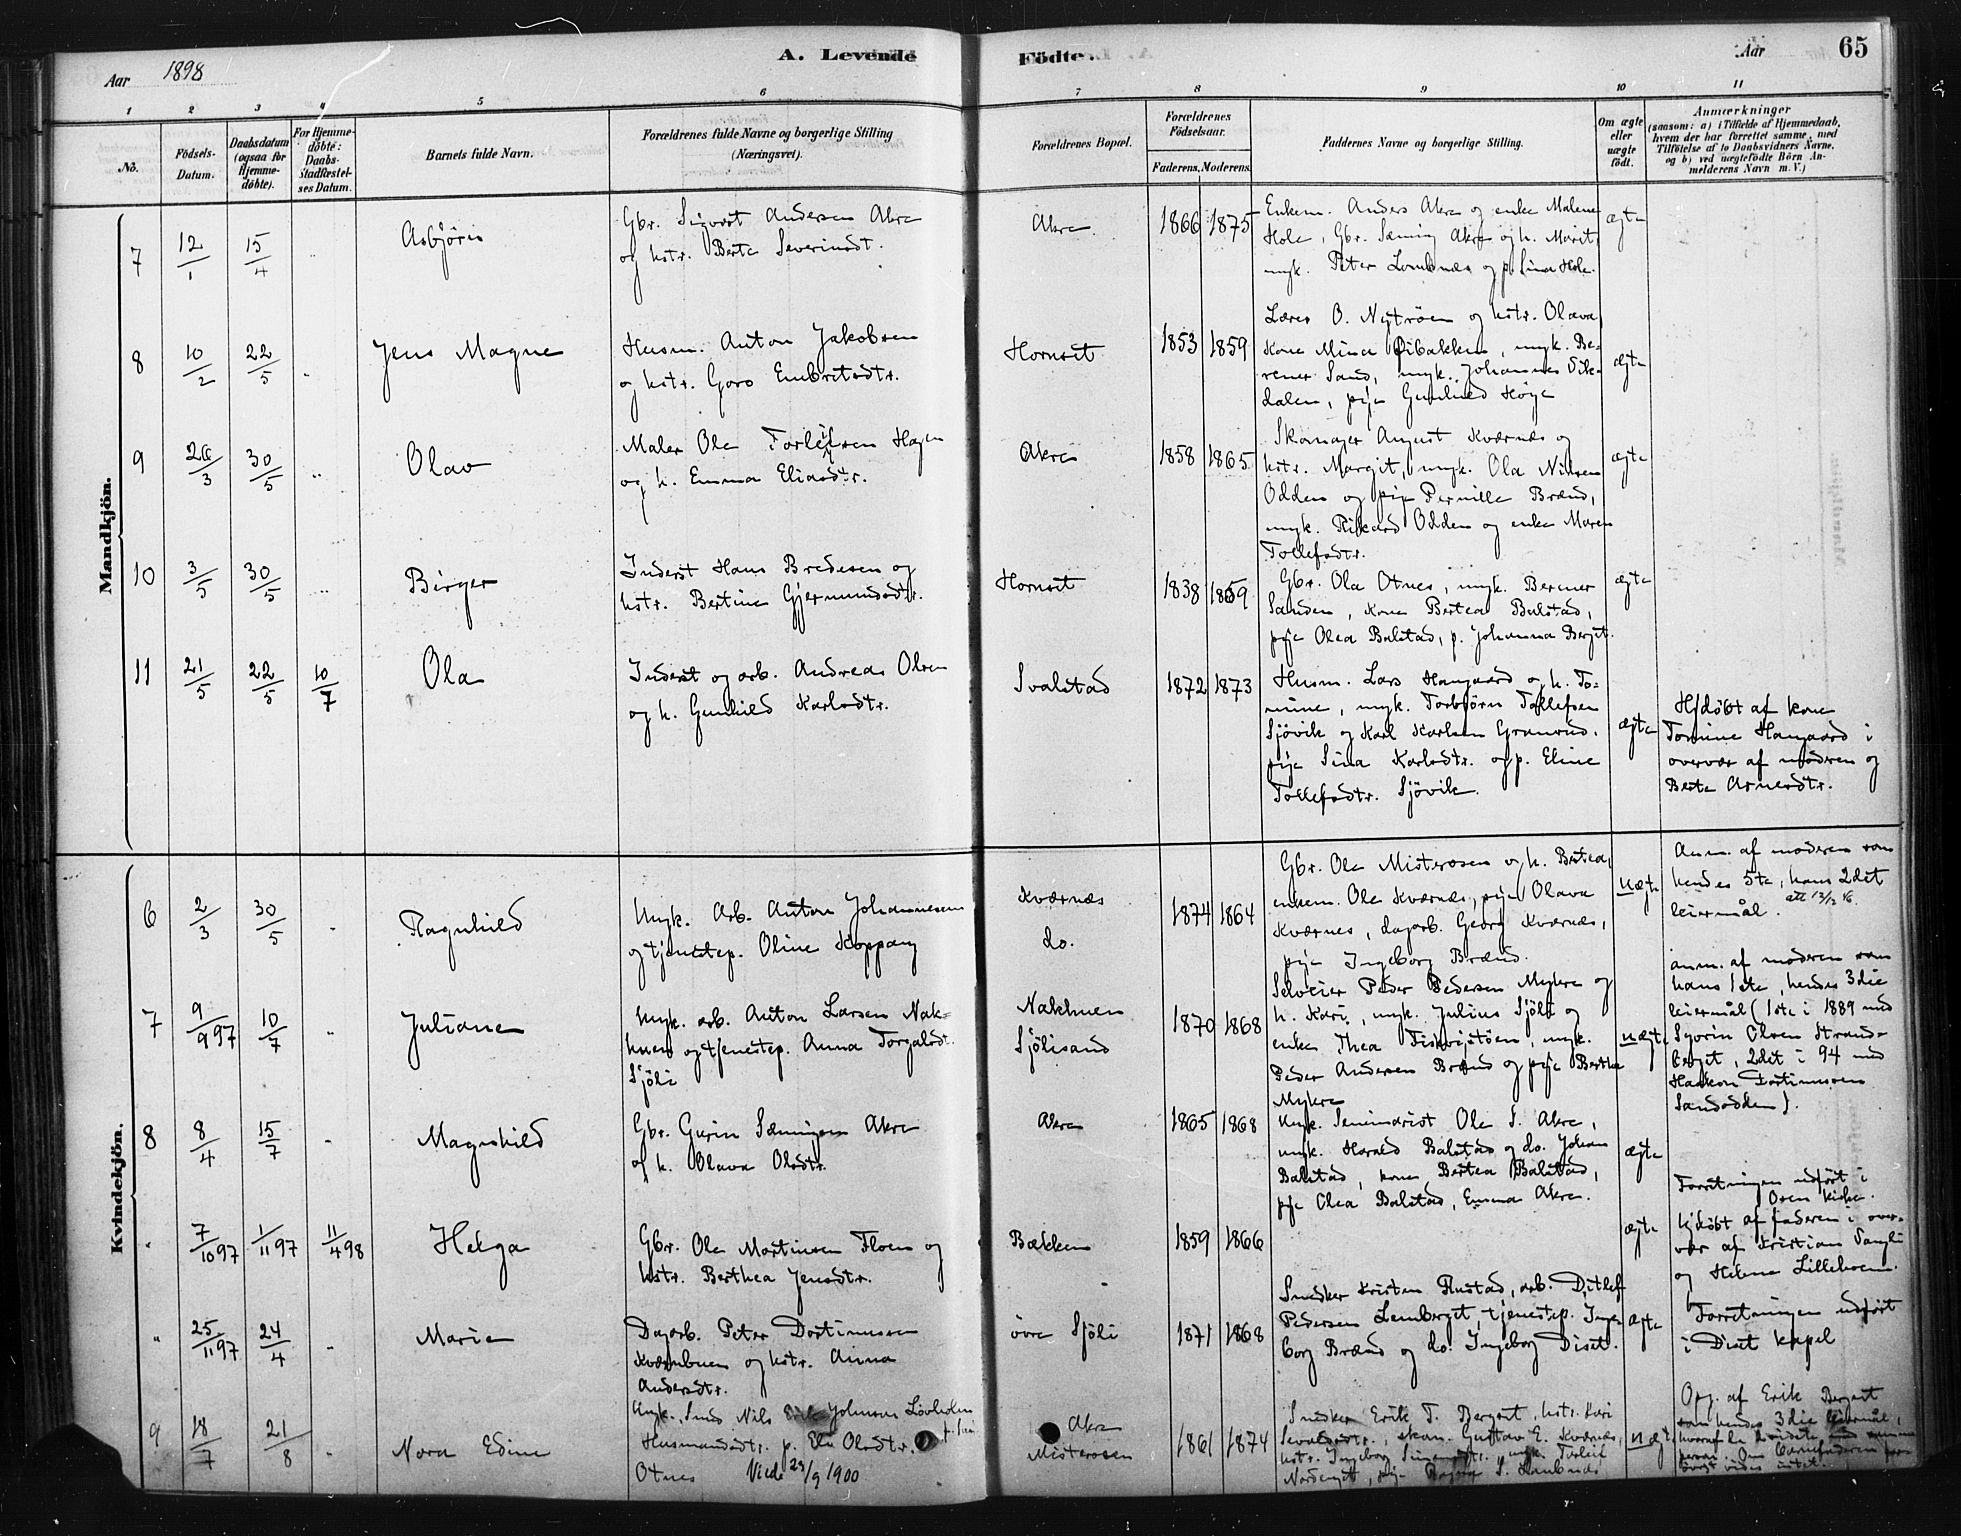 Aar 1898
A. Levende
Födte.
Aar
65
1 2 3 4 5 6 7 8 9 10 11
No.
Födsels-
Datum.
Daabsdatum
(ogsaa for
Hjemme-
döbte).
For Hjemme-
döbte:
Daabs-
Stadfæstel-
ses Datum.
Barnets fulde Navn.
Forældrenes fulde Navne og borgerlige Stilling
(Næringsvei).
Forældrenes Bopæl.
Forældrenes
Födselsaar.
Faderens. Moderens.
Faddernes Navne og borgerlige Stilling.
Om ægte
eller
uægte
födt.
Anmærkninger
(saasom: a) i Tilfælde af Hjemmedaab,
hvem der har forrettet samme, med
Tilföielse af to Daabsvidners Navne,
og b) ved uægtefödte Börn An-
melderens Navn m. V.)
Mandkjön.
7 12/1 15/4 Asbjörn
Gbr. Sigvart Andersen Akre
og hstr. Berte Severinsdt.
Akre 1866 1875
Enkem. Anders Akre og enke Malene
Hole, Gbr. Sæming Akre og h. Marit,
ungk. Peter Lombnæs og p. Sina Hole.
ægte
8 10/2 22/5 Jens Magne
Husm. Anton Jakobsen
og hstr. Goro Embretsdtr.
Hornset 1853 1859
Lærer O. Nytröen og hstr. Olava,
Kone Mina Öibakken, ungk. Be-
rener Sand, ungk. Johannes Vik-
dalen, pige Gunhild Höye
ægte
9 26/3 30/5 Olav
Maler Ole Torleifsen Hagen
og h. Emma Eliasdtr.
Akre 1858 1865
Skomager August Kværnæs og
hstr. Margit, ungk. Ola Nilsen
Odden og pige Pernille Brænd,
ungk. Rikard Odden og enke Maren
Tollefsdtr.
ægte
10 3/5 30/5 Birger
Inderst Hans Bredesen og
hstr. Bertine Gjermundsdtr.
Hornset 1838 1859
Gbr. Ola Otnes, ungk. Berner
Sanden, kone Bertea Balstad,
pige Olea Balstad, p. Johanna Berget.
ægte
11 21/5 22/5 10/7 Ola
Inderst og arb. Andreas Olsen
og h. Gunhild Karlsdtr.
Svalstad 1872 1873
Husm. Lars Haugaard og h. To-
mine, ungk. Torbjörn Tollefsen
Sjövik og Karl Karlsen Granrud.
pige Sina Karlsdtr. og p. Eline
Tollefsdtr. Sjövik.
ægte
Hjdöbt af kone
Tomine Haugaard i
overvær af moderen og
Berte Arnesdtr.
Kvindekjön.
6 2/3 30/5 Ragnhild
Ungk. Arb. Anton Johannesen
og tjenestep. Oline Koppang
Kværnæs
do.
1874 1864
Gbr. Ole Misterosen og h. Bertea,
enkem. Ole Kværnæs, pige Olava
Kværnes, dagarb. Georg Kværnæs,
pige Ingeborg Brænd.
uægte
Anm. af moderen som
hendes 5te, hans 2det
leiermål.
7 9/9 97 10/7 Juliane
Ungk. arb. Anton Larsen Nak-
kuen og tjenestep. Anna Torgalsdt.
Sjöli
Nakkuen
Sjölisand
1870 1868
Selveier Peder Pedersen Myhre og
h. Kari, ungk. Julius Sjöli og
enke Thea Fiskvigtöen, ungk.
Peder Andersen Brænd og pige Berthe
Myhre
uægte
anm. af moderen som
hans 1ste, hendes 3die
leiermål (1ste i 1889 med
Syvrin Olsen Strand-
berget, 2det i 94 med
Haakon Dortinussen
Sandodden).
8 8/4 15/7 Magnhild
Gbr. Gurin Sæmingsen Akre
og h. Olava Olsdtr.
Akre 1865 1868
Ungk. Seminarist Ole S. Akre,
ungk. Harald Balstad og do. Johan
Balstad, kone Bertea Balstad,
pige Olea Balstad, Emma Akre.
ægte
Forretningen udfört i
Oren kirke.
" 7/10 97 1/11 97 11/4 98 Helga
Gbr. Ole Martinsen Floen og
hstr. Berthea Jensdtr.
Bækken 1859 1866
ægte
Hjdöbt af faderen i over-
vær af Kristian
og Helene Lillehoem.
" 25/11 97 24/4 Marie
Dagarb. Peter Dortinussen
Kværnbuen og hstr. Anna
Andersdtr.
övre Sjöli 1871 1868
Snedker Kristen Rustad, arb. Ditlef
Pedersen Lemberget, tjenestep. Inge-
borg Brænd og do. Ingeborg Diset.
ægte
Forretningen udfört
i Diset kapel
9 18/7 21/8 Nora Edine
Ungk. Smed Nils Erik Johnsen Lövholm
Husmandsdtr. p. Eli Olsdtr.
Otnes Viede 29/9 1900
Akre
Misterosen
1861 1874
Snedker Erik T. Berget, hstr. Kari
Sevaldsdtr., skom. Gustav E. Kværnæs,
hstr. Ingeborg
uægte
Opg. af Erik Berget
som hendes 3die leiermål,